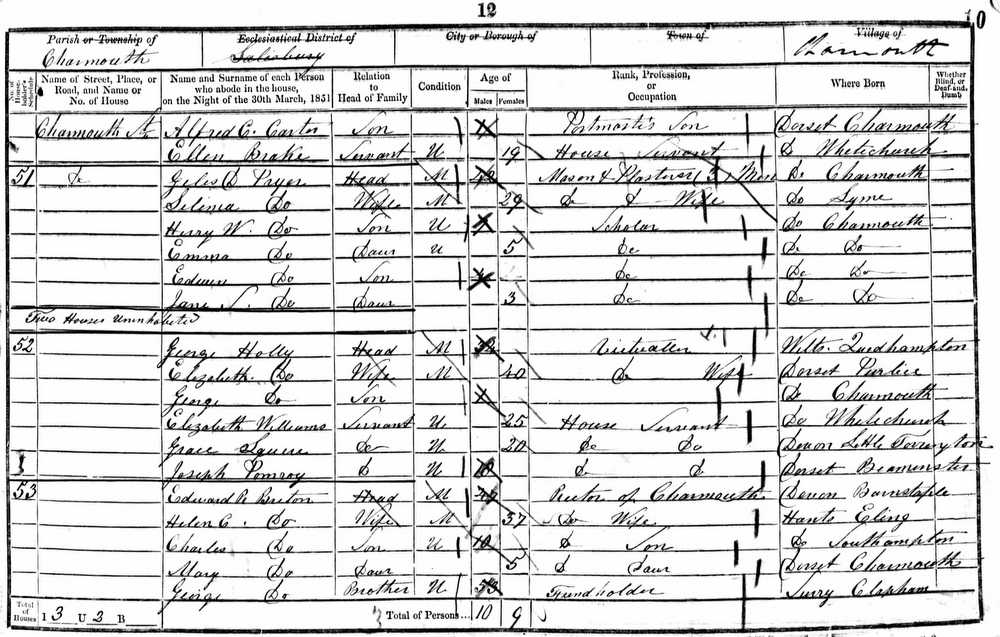 12
10
Parish or Township of Charmouth
Ecclesiastical District of Salisbury
City or Borough of
Town of
Village of Charmouth
No. of Householder's Schedule
Name of Street, Place, or Road, and Name or No. of House
Name and Surname of each Person who abode in the house, on the Night of the 30th March, 1851
Relation to Head of Family
Condition
Age of
Males Females
Rank, Profession, or Occupation
Where Born
Whether Blind, or Deaf-and-Dumb
Charmouth St Alfred C. Carter Son Postmaster's Son Dorset Charmouth
Ellen Brake Servant U 19 House Servant Do Whitechurch
51 Do Giles D Pryer Head M Mason & Plasterer 3 Men Do Charmouth
Selinea Do Wife M 29 Do & Wife Do Lyme
Henry W. Do Son U Scholar Do Charmouth
Emma Do Daur U 5 Do Do Do
Edwin Do Son Do Do Do
Jane S. Do Daur 3 Do Do Do
Two Houses Uninhabited
52 George Holly Head M Victualler Wilts.
Elizabeth Do Wife M 40 Do Wife Dorset
George Do Son Do Charmouth
Elizabeth Williams Servant U 25 House Servant Do Whitechurch
Grace Squire Do U 20 Do Do Devon Little Torrington
Joseph Pomroy Do U 10 Do Do Dorset Beaminster
53 Edward R Breton Head M Rector of Charmouth Devon Barnstaple
Helen C. Do Wife M 37 Do Wife Hants Eling
Charles Do Son U 10 Do Son Do Southampton
Mary Do Daur 5 Do Daur Dorset Charmouth
George Do Brother U 53 Fundholder Surry Clapham
Total of Houses I 3 U 2 B Total of Persons... 10 9